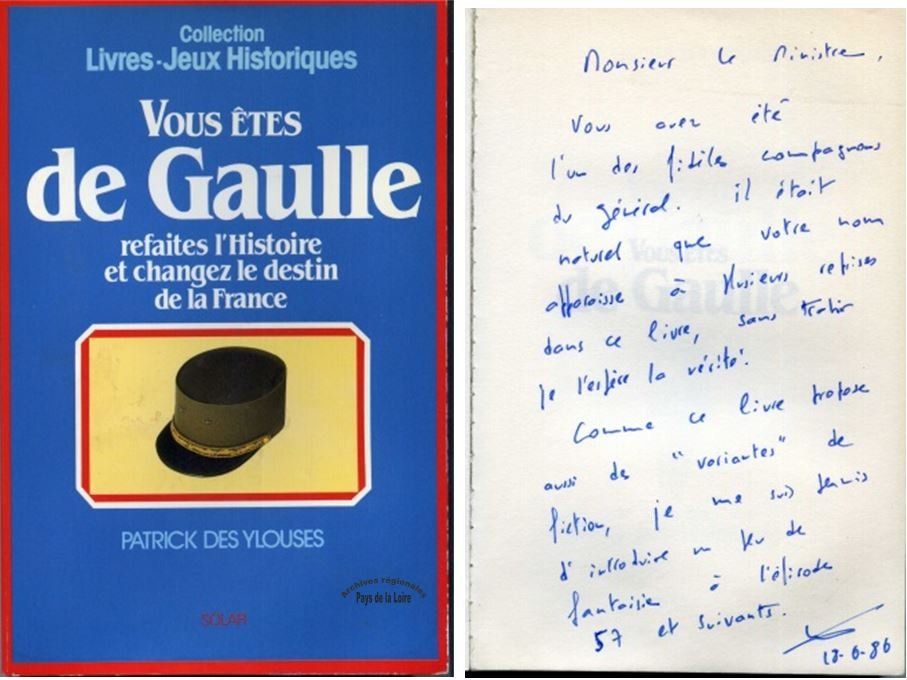 Collection
Livres-Jeux Historiques
VOUS ÊTES
de Gaulle
refaites l'Histoire
et changez le destin
de la France
PATRICK DES YLOUSES
Archives régionales
Pays de la Loire
SOLAR
Monsieur le Ministre,
Vous avez été
l'un des fidèles compagnons
du général. il était
naturel que votre nom
apparaisse à plusieurs reprises
dans ce livre, sans trahir
je l'espère la vérité.
Comme ce livre propose
aussi des "variantes" de
fiction, je me suis permis
d'introduire un peu de
fantaisie à l'épisode
57 et suivants.
18-6-86
VOUS ÊTES
de Gaulle